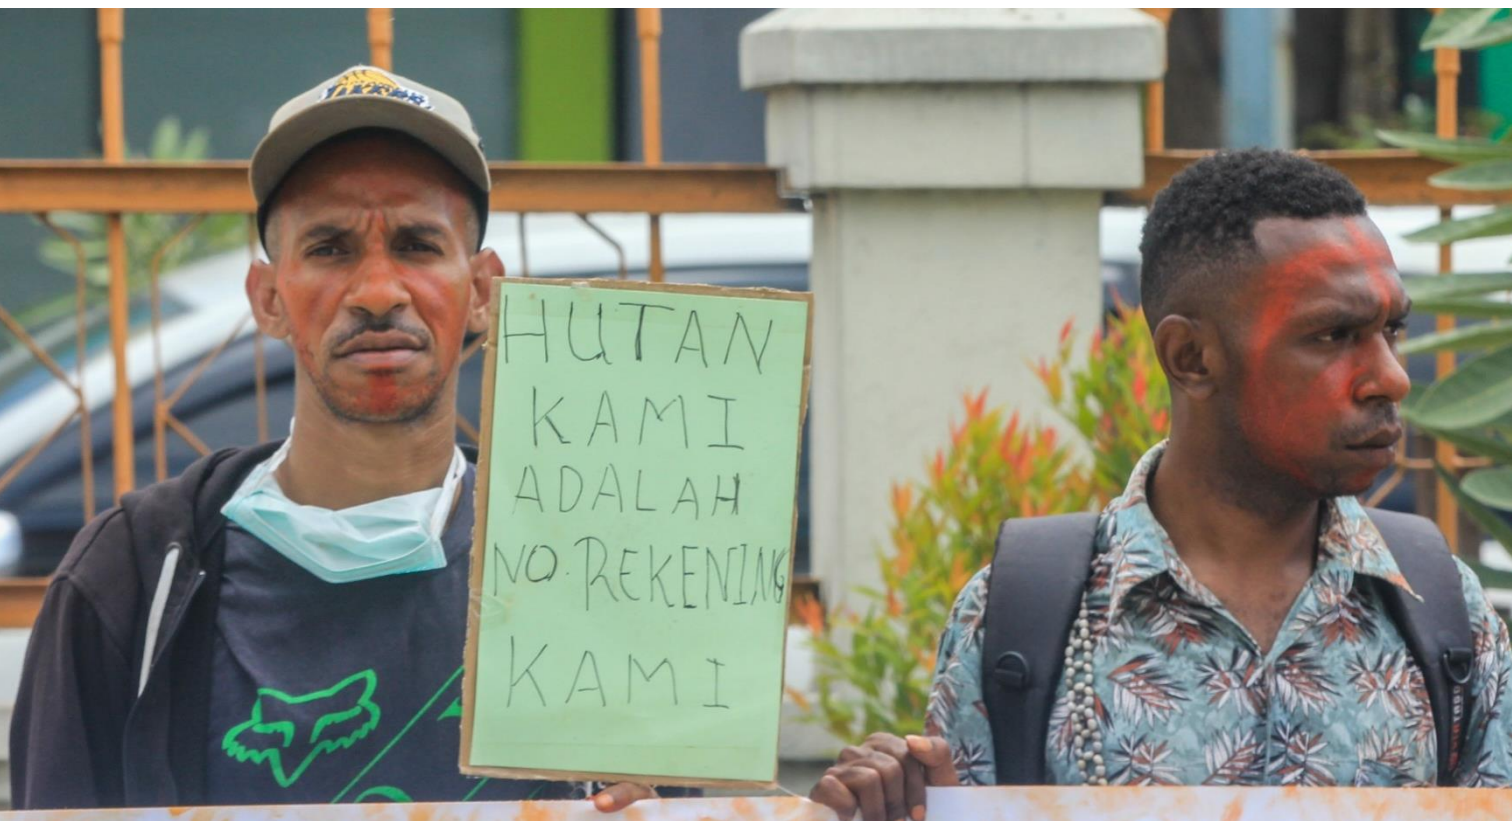 HUTAN
KAMI
ADALAH
NO. REKENING
KAMI